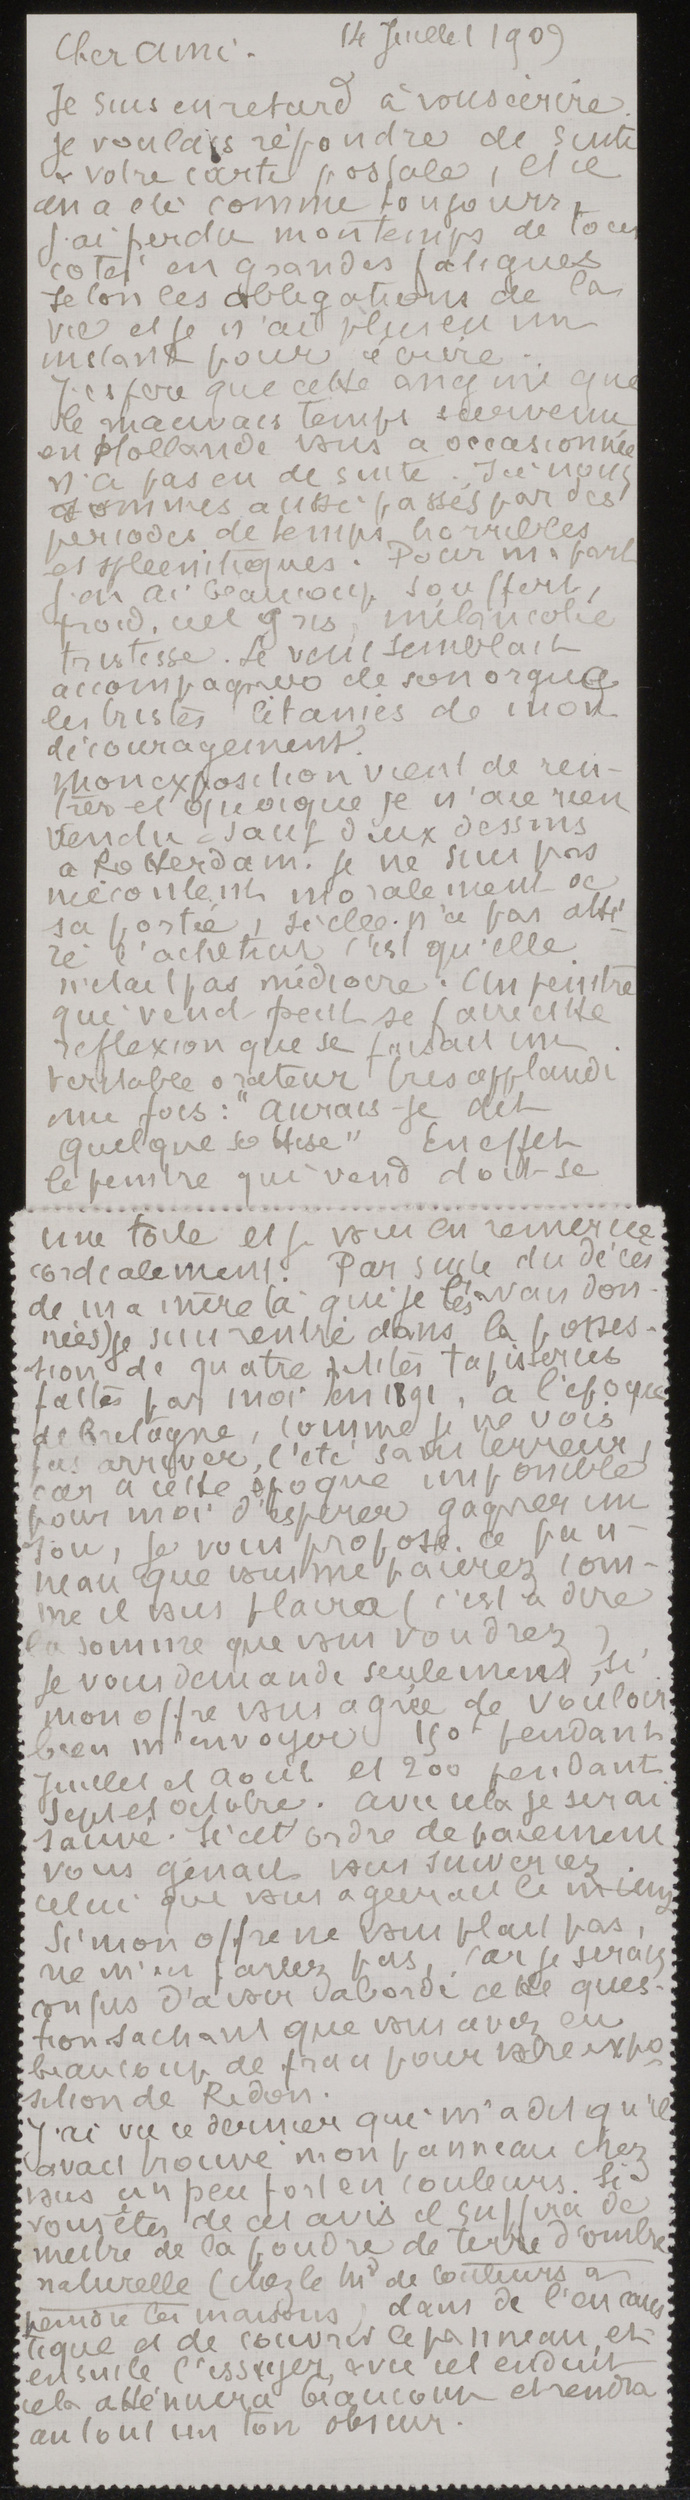 14 Juillet 1909
Cher Ami.
Je suis en retard à vous écrire.
je voulais répondre de suite
a votre carte postale, et il
en a été comme toujours,
j'ai perdu mon temps de tous
cotés en grandes fatigues
selon les obligations de la
vie et je n'ai plus eu un
instant pour écrire.
J'espère que cette angine que
le mauvais temps survenu
en Hollande vous a occasionnée
n'a pas eu de suite. Ici nous
sommes aussi passés par des
periodes de temps horribles
et spleenitiques. Pour ma part
j'en ai beaucoup souffert,
froid, ciel gris, mélancolie
tristesse. Le vent semblait
accompagner de son orgue
les tristes litanies de mon
découragement.
Mon exposition vient de ren-
trer et quoique je n'aie rien
vendu sauf deux dessins
a Rotterdam. je ne suis pas
mécontent moralement de
sa portée, si elle n'a pas atti-
ré l'acheteur c'est qu'elle
n'etait pas médiocre. Un peintre
qui vend peut se faire cette
reflexion que se faisait un
veritable orateur tres applaudi
une fois: "aurais-je dit
quelque sottise" En effet
le peintre qui vend doit se
une toile et je vous en remercie
cordialement. Par suite du décès
de ma mère (à qui je les avais don-
nées) je suis rentré dans la posses-
sion de quatre petites tapisseries
faites par moi en 1891, a l'epoque
de Bretagne, comme je ne vois
pas arriver l'été sans terreur,
car a cette epoque impossible
pour moi d'esperer gagner un
sou, je vous propose ce pan-
neau que vous me paierez com-
me il vous plaira (c'est a dire
la somme que vous voudrez)
Je vous demande seulement, si
mon offre vous agrée de vouloir
bien m'envoyer 150 f pendant
Juillet et Aout et 200 pendant
Sept et octobre. avec cela je serai
sauvé. Si cet ordre de paiement
vous génait vous suiveriez
celui que vous agéerait le mieux
Si mon offre ne vous plait pas,
ne m'en parlez pas, car je serais
confus d'avoir abordé cette ques-
tion sachant que vous avez eu
beaucoup de frais pour votre expo-
sition de Redon.
J'ai vu ce dernier qui m'a dit qu'il
avait trouvé mon panneau chez
vous un peu fort en couleurs. Si
vous êtes de cet avis il suffira de
mettre de la poudre de terre d'ombre
naturelle (chez le md de couleurs a
peindre les maisons) dans de l'encaus
tique et de couvrir le panneau et
ensuite l'essuyer, avec cet enduit
cela atténuera beaucoup et rendra
au tout un ton obscur.